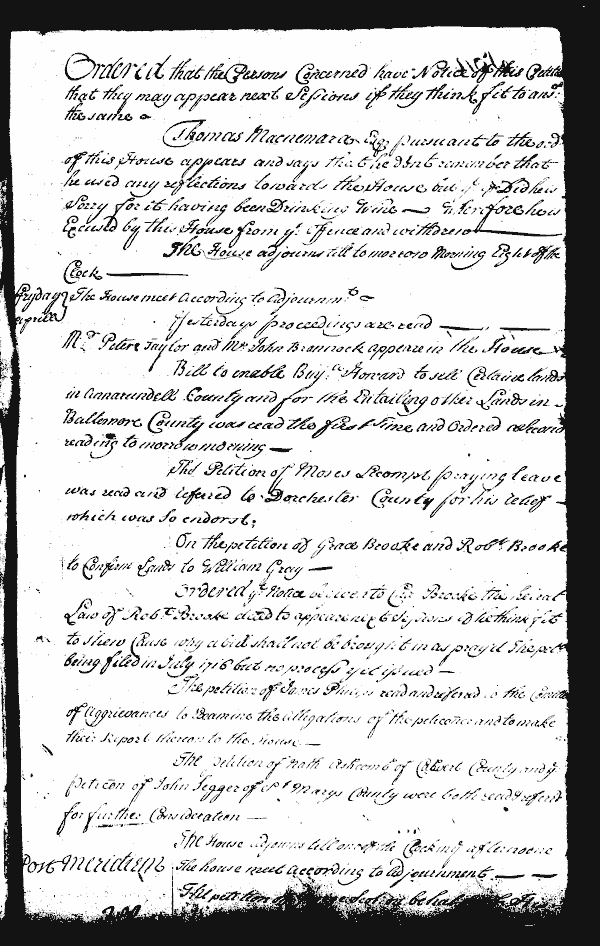 Ordered that the Persons Concerned have Notice of this Petic̄on
that they may appear next Sessions if they think fit to ansr.
the same
Thomas Macnemara Esqr pursuant to the ordr
of this House appears and says that he don't remember that
he used any reflections towards the House but if he Did he is
Sorry for it having been Drinking Wine — wherefore he is
Excused by this House from ye. offence and withdrew —
The House adjourns till to morrow Morning Eight of the
Clock —
Fryday
aprill
The House meet According to adjournmt. —
Yesterdays proceedings are read —
Mr. Peter Taylor and Mr. John Brannock appeare in the House
Bill to enable Benj.a Howard to sell Certaine lands
in annarundell County and for the Entailing other Lands in
Baltemore County was read the first Time and Ordered a Second
reading to morrow morning —
The Petition of Moses Lecompt praying leave
was read and referred to Dorchester County for his relief —
which was So endorst.
On the petition of Grace Brooke and Robt. Brooke
to Confirm Lands to William Gray —
Ordered ye. Notice be given to Brooke the heir at
Law of Robt. Brooke decd to appear next Sessions if he think fit
to shew Cause why a bill shall not be brought in as pray'd The petn.
being filed in July 1716 but no process yet issued —
The petition of James Philips read and referd to the Comittee
of Aggrievances to Examine the allegations of the peticoner and to make
their report thereon to the House —
The petition of Nath Ashcomb of Calvert County and ye
peticon of John Segger of St. Marys County were both read & referd
for further Consideration —
The House adjourns till one of the Clock in ye. afternoone
Post Meridiem
The house meet according to adjournment —
The petition of on behalf of